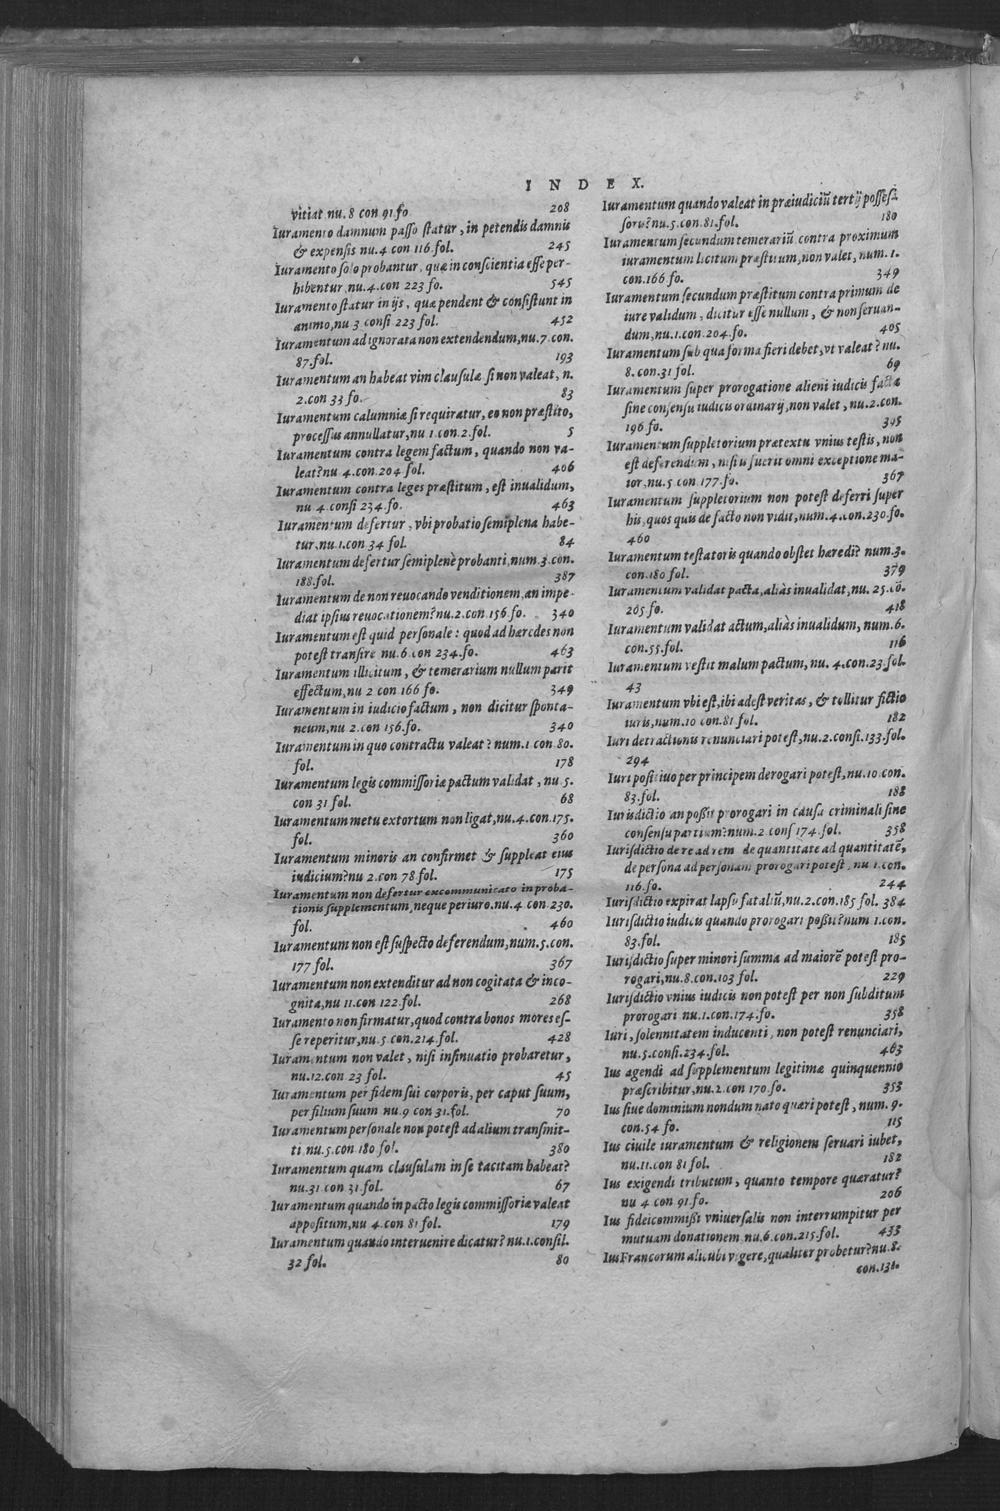 INDEX.
vitiat nu. 8 con 91. fo 208
Iuramento damnum passo statur, in petendis damnis
& expensis nu. 4 con 116. fol. 245
Iuramento solo probantur, quæ in conscientia esse per-
hibentur, nu. 4. con 223 fo. 545
Iuramento statur in ijs, quæ pendent & consistunt in
animo, nu 3 consi 223 fol. 452
Iuramentum ad ignorata non extendendum, nu. 7. con.
87. fol. 193
Iuramentum an habeat vim clausulæ si non valeat, n.
2. con 33 fo. 83
Iuramentum calumniæ si requiratur, eo non præstito,
processus annullatur, nu 1. con. 2. fol. 5
Iuramentum contra legem factum, quando non va-
leat? nu 4. con. 204 fol. 406
Iuramentum contra leges præstitum, est inualidum,
nu 4 consi 234. fo. 463
Iuramentum defertur, vbi probatio semiplena habe-
tur, nu. 1. con. 34 fol. 84
Iuramentum defertur semiplenè probanti, num. 3. con.
188. fol. 387
Iuramentum de non reuocando venditionem, an impe-
diat ipsius reuocationem? nu. 2. con. 156. fo. 340
Iuramentum est quid personale: quod ad hæredes non
potest transire nu. 6. con 234. fo. 463
Iuramentum illicitum, & temerarium nullum parit
effectum, nu 2 con 166 fo. 349
Iuramentum in iudicio factum, non dicitur sponta-
neum, nu 2. con 156. fo. 340
Iuramentum in quo contractu valeat? num. 1 con 80.
fol. 178
Iuramentum legis commissoriæ pactum validat, nu 5.
con 31 fol. 68
Iuramentum metu extortum non ligat, nu. 4. con. 175.
fol. 360
Iuramentum minoris an confirmet & suppleat eius
iudicium? nu 2. con 78. fol. 175
Iuramentum non defertur excommunicato in proba-
tionis supplementum, neque periuro. nu. 4 con 230.
fol. 460
Iuramentum non est suspecto deferendum, num. 5. con.
177 fol. 367
Iuramentum non extenditur ad non cogitata & inco-
gnita, nu 11. con 122. fol. 268
Iuramento non firmatur, quod contra bonos mores es-
se reperitur, nu. 5 con. 214. fol. 428
Iuramentum non valet, nisi insinuatio probaretur,
nu. 12. con 23 fol. 45
Iuramentum per fidem sui corporis, per caput suum,
per filium suum nu. 9 con 31. fol. 70
Iuramentum personale non potest ad alium transmit-
ti nu. 5. con 180 fol. 380
Iuramentum quam clausulam in se tacitam habeat?
nu. 31 con 31. fol. 67
Iuramentum quando in pacto legis commissoriæ valeat
appositum, nu 4. con 81 fol. 179
Iuramentum quando interuenire dicatur? nu. 1. consil.
32 fol. 80
Iuramentum quando valeat in præiudiciũ tertij posses-
soris? nu. 5. con. 81. fol. 180
Iuramentum secundum temerariũ contra proximum
iuramentum licitum præstitum, non valet, num. 1.
con. 166 fo. 349
Iuramentum secundum præstitum contra primum de
iure validum, dicitur esse nullum, & non seruan-
dum, nu. 1. con. 204. fo. 405
Iuramentum sub qua forma fieri debet, vt valeat? nu.
8. con. 31 fol. 69
Iuramentum super prorogatione alieni iudicis facta
sine consensu iudicis ordinarij, non valet, nu. 2. con.
196 fo. 395
Iuramentum suppletorium prætextu vnius testis, non
est deferendum, nisi is fuerit omni exceptione ma-
ior, nu. 5 con. 177. fo. 367
Iuramentum suppletorium non potest deferri super
his, quos quis de facto non vidit, num. 4. con. 230. fo.
460
Iuramentum testatoris quando obstet hæredi? num. 3.
con. 180 fol. 379
Iuramentum validat pacta, aliàs inualidat, nu. 25. cõ.
205 fo. 418
Iuramentum validat actum, aliàs inualidum, num. 6.
con. 55. fol. 116
Iuramentum vestit malum pactum, nu. 4. con. 23. fol.
43
Iuramentum vbi est, ibi adest veritas, & tollitur fictio
iuris, num. 10 con. 81 fol. 182
Iuri detractionis renunciari potest, nu. 2. consi. 133. fol.
294
Iuri positiuo per principem derogari potest, nu. 10. con.
83. fol. 188
Iurisdictio an possit prorogari in causa criminali sine
consensu partium? num. 2 cons 174. fol. 358
Iurisdictio de re ad rem de quantitate ad quantitatẽ,
de persona ad personam prorogari potest, nu 1. con.
116. fo. 244
Iurisdictio expirat lapsu fataliũ, nu. 2. con. 185 fol. 384
Iurisdictio iudicis quando prorogari possit? num 1. con.
83. fol. 185
Iurisdictio super minori summa ad maiorẽ potest pro-
rogari, nu. 8. con. 103 fol. 229
Iurisdictio vnius iudicis non potest per non subditum
prorogari nu. 1. con. 174. fo. 358
Iuri, solennitatem inducenti, non potest renunciari,
nu. 5. consi. 234. fol. 463
Ius agendi ad supplementum legitimæ quinquennio
præscribitur, nu. 2. con 170. fo. 353
Ius siue dominium nondum nato quæri potest, num. 9.
con. 54 fo. 115
Ius ciuile iuramentum & religionem seruari iubet,
nu. 11. con 81 fol. 182
Ius exigendi tributum, quanto tempore quæratur?
nu 4 con 91. fo. 206
Ius fideicommissi vniuersalis non interrumpitur per
mutuam donationem, nu. 6. con. 215. fol. 433
Ius Francorum alicubi vigere, qualiter probetur? nu. 8.
con. 131.